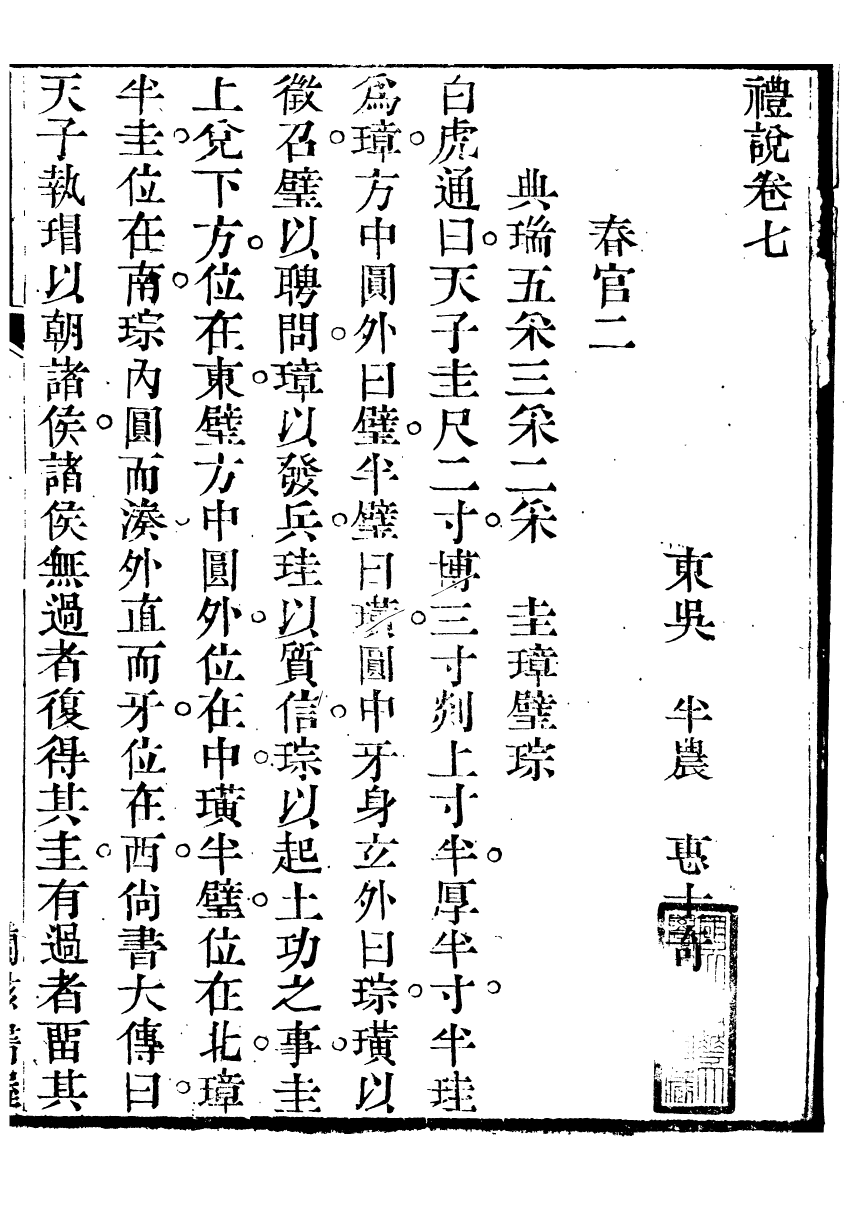 禮說卷七
東吳　半農　惠士奇
春官二
典瑞五采三采二采　圭璋璧琮
白虎通曰天子圭尺二寸博三寸剡上寸半厚半寸半珪
爲璋方中圓外曰璧半璧曰璜圓中牙身玄外曰琮璜以
徵召璧以聘問璋以發兵珪以質信琮以起土功之事圭
上兌下方位在東璧方中圓外位在中璜半璧位在北璋
半圭位在南琮內圓而湊外直而牙位在西尙書大傳曰
天子執瑁以朝諸侯諸侯無過者復得其圭有過者畱其